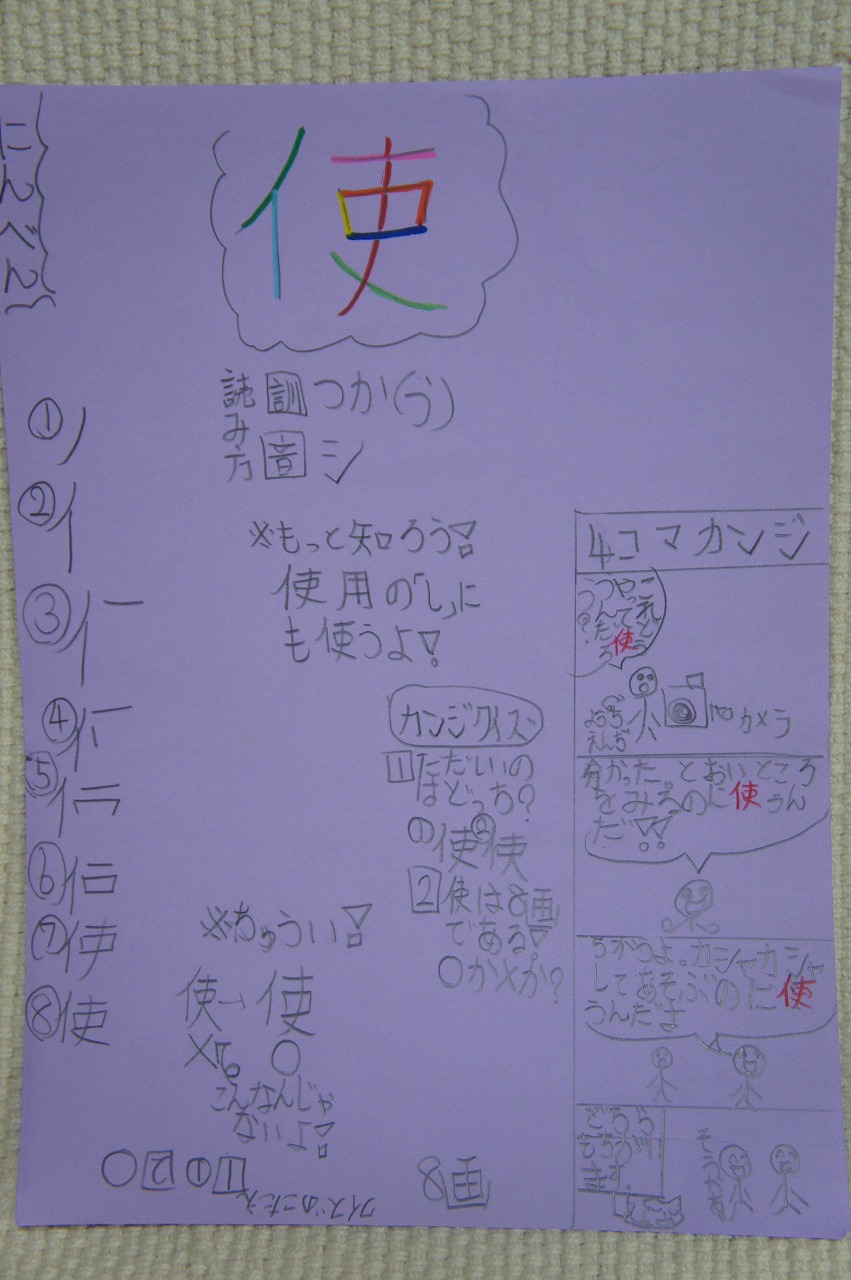 にんべん
使
読み方
訓 つか(う)
音 シ
①
②
③
④
⑤
⑥
⑦
⑧使
※もっと知ろう!
使用の「し」に
も使うよ!
カンジクイズ
1 ただしいの
はどっち?
①使 ②使
2 使は8画
である!
○か×か?
※ちゅうい!
使→使
× ○
こんなんじゃ
ないよ!
クイズのこたえ
1 ① 2 ○
8画
4コマカンジ
これどう
やって使
うんだろ
う?
ようち
えんじ
カメラ
分かった。とおいところ
をみるのに使うん
だ!!
ちがうよ。カシャカシャ
してあそぶのに使
うんだよ
どちら
もちがい
ます。